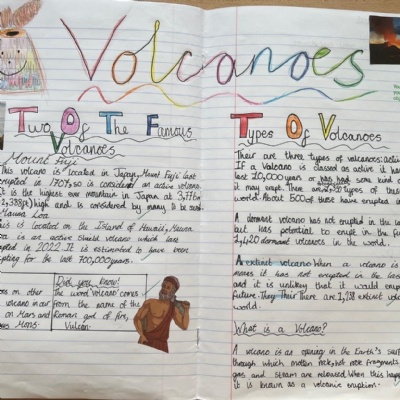 Volcanoes
Two Of The Famous
Volcanoes
Mount Fuji
This volcano is located in Japan, Mount Fuji last
erupted in 1707, so is considered an active volcano.
It is the highest one mountain in Japan at 3,776m
2,388ft) high and is considered by many to be sacred.
Mauna Loa
This is located on the Island of Hawaii, Mauna
Loa is an active shield volcano which last
erupted in 2022. It is estimated to have been
erupting for the last 700,000 years.
on other
volcano in our
on Mars and
Mons.
Did you know!
The word 'Volcano' comes
from the name of the
Roman god of fire,
Vulcan.
Types Of Volcanoes
Their are three types of volcanoes: acti
If a volcano is classed as active it ha
last 10,000 years or has had some kind o
it may erupt. There are types of these
world. About 500 of these have erupted in
A dormant volcano has not erupted in the la
but has potential to erupt in the fu
1,420 dormant volcanoes in the world.
A extinct volcano. When a volcano is
means it has not erupted in the las
and it is unlikely that it would eru
future. They Their There are 1,238 extinct volc
world.
What is a Volcano?
A volcano is an opening in the Earth's surf
through which molten rock, hot rock fragments
gas and steam are released. When this happ
it is known as a volcanic eruption.